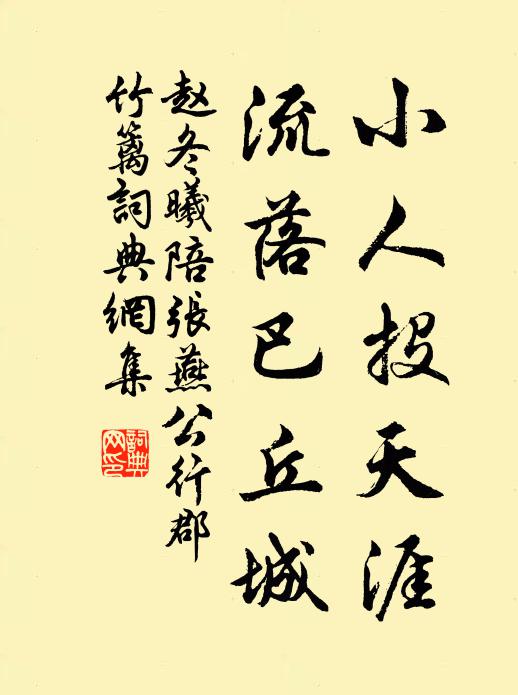 小人投天涯
流落巴丘城
赵冬曦陪張燕公行郡
竹篱詞典網集
詞典網印